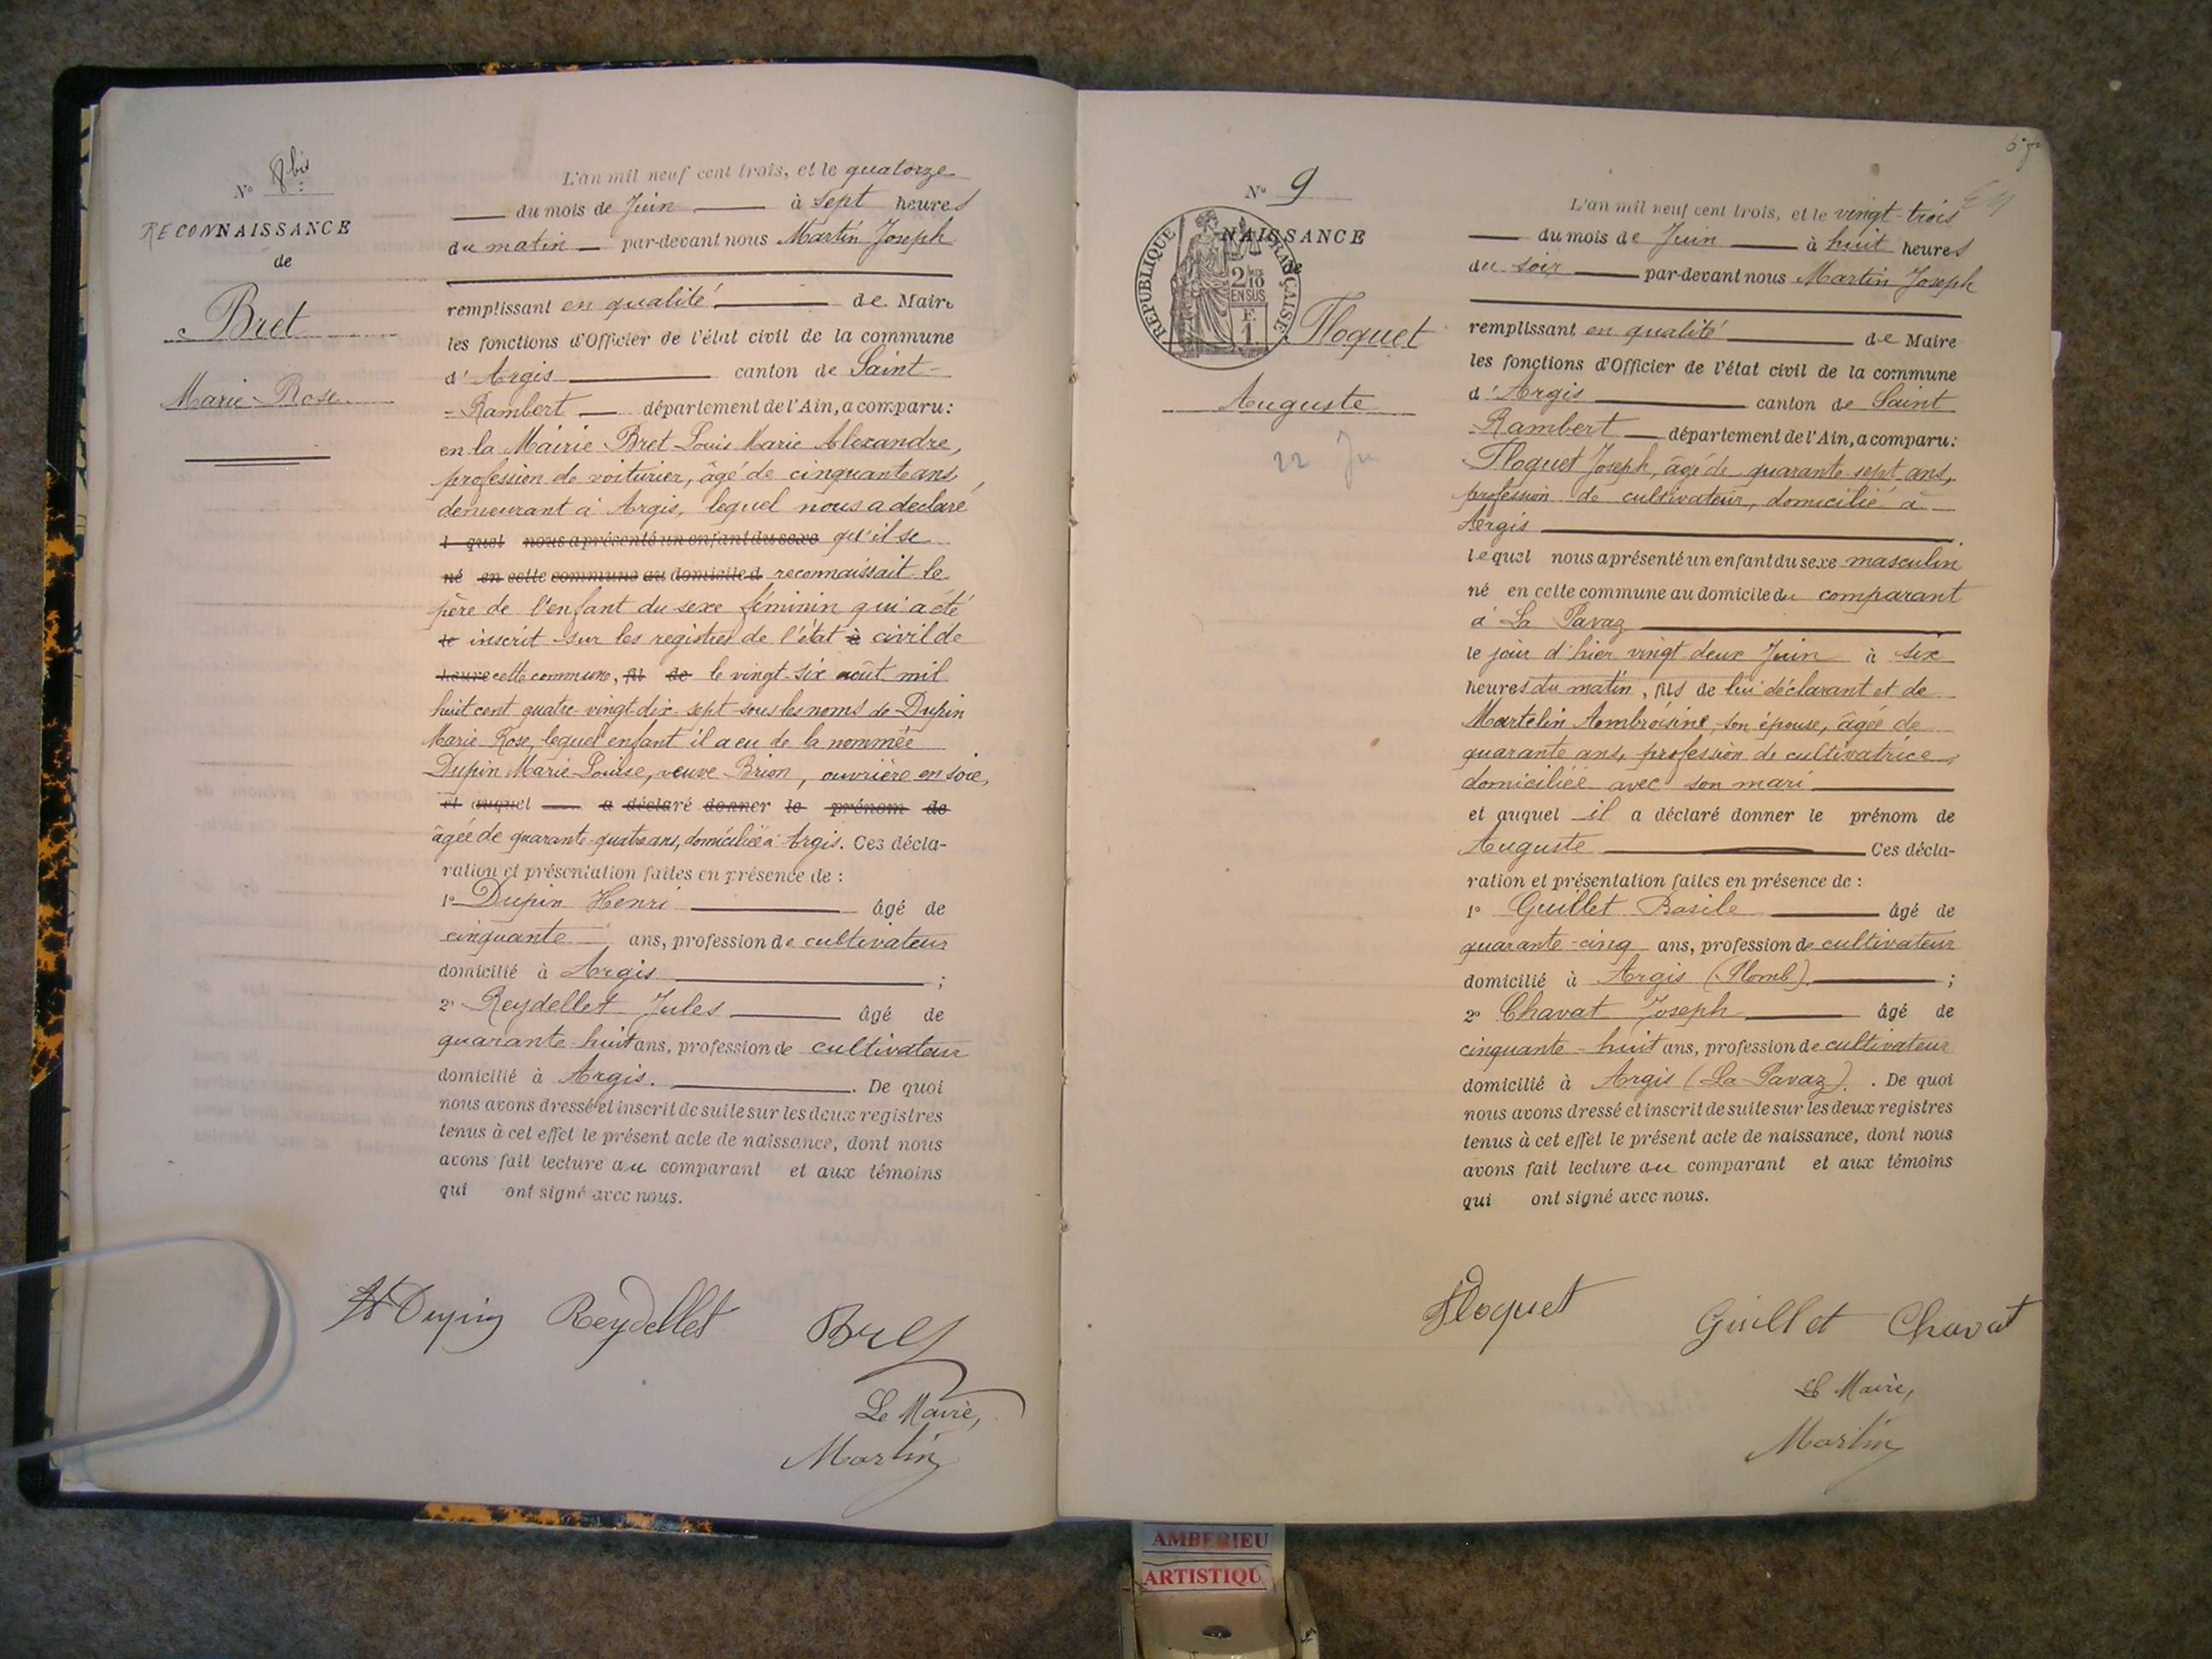 N° 8 bis
RECONNAISSANCE
de
Bret
Marie Rose
L'an mil neuf cent trois, et le quatorze
du mois de Juin à sept heures
du matin par-devant nous Martin Joseph
remplissant en qualité de Maire
les fonctions d'Officier de l'état civil de la commune
d'Argis canton de Saint-
-Rambert département de l'Ain, a comparu:
en la Mairie Bret Louis Marie Alexandre,
profession de voiturier, âgé de cinquante ans,
demeurant à Argis, lequel nous a declaré
l quel nous a présenté un enfant du sexe qu'il se
né en cette commune au domicile d reconnaissait le
père de l'enfant du sexe féminin qui a été
le inscrit sur les registres de l'état à civil de
heure cette commune, fil de le vingt-six août mil
huit cent quatre-vingt-dix-sept sous les noms de Dupin
Marie Rose, lequel enfant il a eu de la nommée
Dupin Marie Louise, veuve Brion, ouvrière en soie,
et auquel a déclaré donner le prénom de
âgée de quarante-quatre ans, domiciliée à Argis. Ces décla-
ration et présentation faites en présence de :
1° Dupin Henri âgé de
cinquante ans, profession de cultivateur
domicilié à Argis ;
2° Reydellet Jules âgé de
quarante-huit ans, profession de cultivateur
domicilié à Argis. . De quoi
nous avons dressé et inscrit de suite sur les deux registres
tenus à cet effet le présent acte de naissance, dont nous
avons fait lecture au comparant et aux témoins
qui ont signé avec nous.
H Dupin Reydellet Bret
Le Maire,
Martin
N° 9
NAISSANCE
de
RÉPUBLIQUE FRANÇAISE
2/10
EN SUS
F.
1
Floquet
Auguste
22 Ju
L'an mil neuf cent trois, et le vingt-trois
du mois de Juin à huit heures
du soir par-devant nous Martin Joseph
remplissant en qualité de Maire
les fonctions d'Officier de l'état civil de la commune
d'Argis canton de Saint
-Rambert département de l'Ain, a comparu:
Floquet Joseph, âgé de quarante-sept ans,
profession de cultivateur, domicilié à
Argis
lequel nous a présenté un enfant du sexe masculin
né en cette commune au domicile du comparant
à La Pavaz
le jour d'hier vingt deux Juin à six
heures du matin, fils de lui déclarant et de
Martelin Ambroisine, son épouse, âgée de
quarante ans, profession de cultivatrice,
domiciliée avec son mari
et auquel il a déclaré donner le prénom de
Auguste Ces décla-
ration et présentation faites en présence de :
1° Guillet Basile âgé de
quarante-cinq ans, profession de cultivateur
domicilié à Argis (Plomb) ;
2° Chavat Joseph âgé de
cinquante-huit ans, profession de cultivateur
domicilié à Argis (La Pavaz). . De quoi
nous avons dressé et inscrit de suite sur les deux registres
tenus à cet effet le présent acte de naissance, dont nous
avons fait lecture au comparant et aux témoins
qui ont signé avec nous.
Floquet Guillet Chavat
Le Maire,
Martin
AMBERIEU
ARTISTIQU